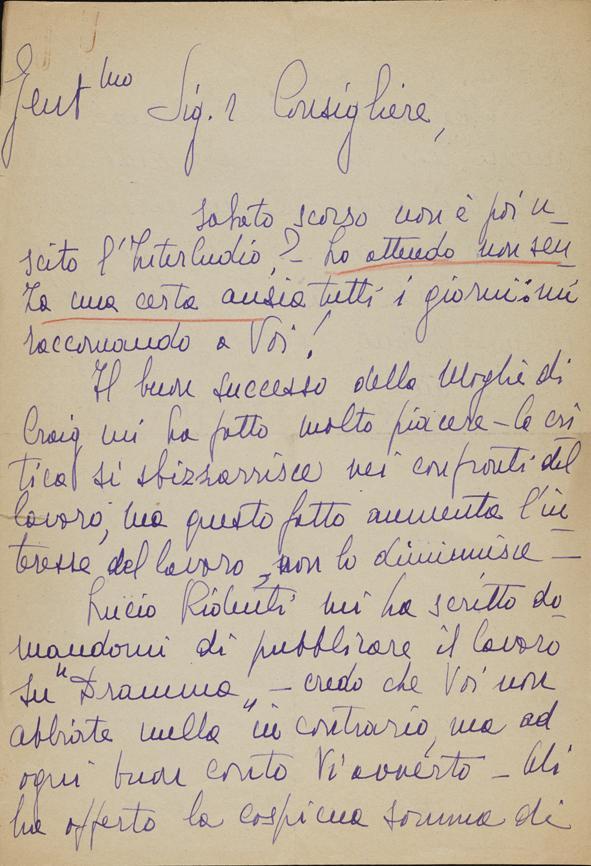 Gent.mo Sig.r Consigliere,
sabato scorso non è poi u-
scito l'Interludio? - Lo attendo non sen
za una certa ansia tutti i giorni: mi
raccomando a Voi!
Il buon successo della Moglie di
Craig mi ha fatto molto piacere - la cri
tica si sbizzarrisce nei confronti del
lavoro, ma questo fatto aumenta l'in
teresse del lavoro, non lo diminuisce -
Lucio Ridenti mi ha scritto do
mandomi di pubblicare il lavoro
su "Dramma" - credo che Voi non
abbiate nulla in contrario, ma ad
ogni buon conto Vi avverto - Mi
ha offerto la cospicua somma di